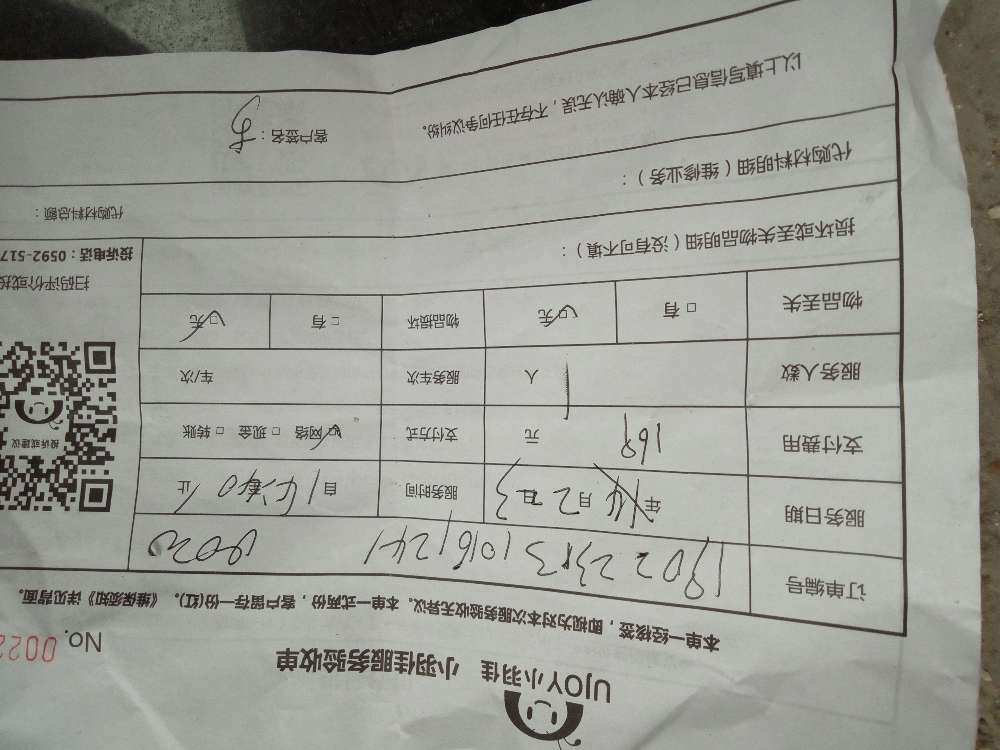 UJOY小羽佳 小羽佳服务验收单
No. 002
本单一经核签，即视为对本次服务验收无异议。本单一式两份，客户留存一份(红)。《维保须知》详见背面。
订单编号
服务日期 年 月 日 服务时间 自 止
支付费用 168 元 支付方式 网络 □ 现金 □ 转账
服务人数 1 人 服务车次 车/次
物品丢失 □ 有 □ 无 物品损坏 □ 有 □ 无
投诉或建议
扫码评价或投
投诉电话：0592-517
损坏或丢失物品明细（没有可不填）：
代购材料明细（维修业务）：
代购材料总额：
以上填写信息已经本人确认无误，不存在任何争议纠纷。
客户签名：